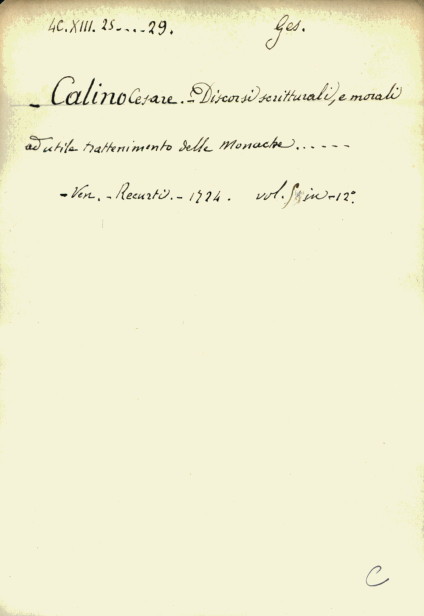 4C.XIII.25....29. Ges.
- Calino Cesare. = Discorsi scritturali, e morali
ad utile trattenimento delle Monache......
- Ven. - Recurti. - 1724. vol. 5 in-12°.
C